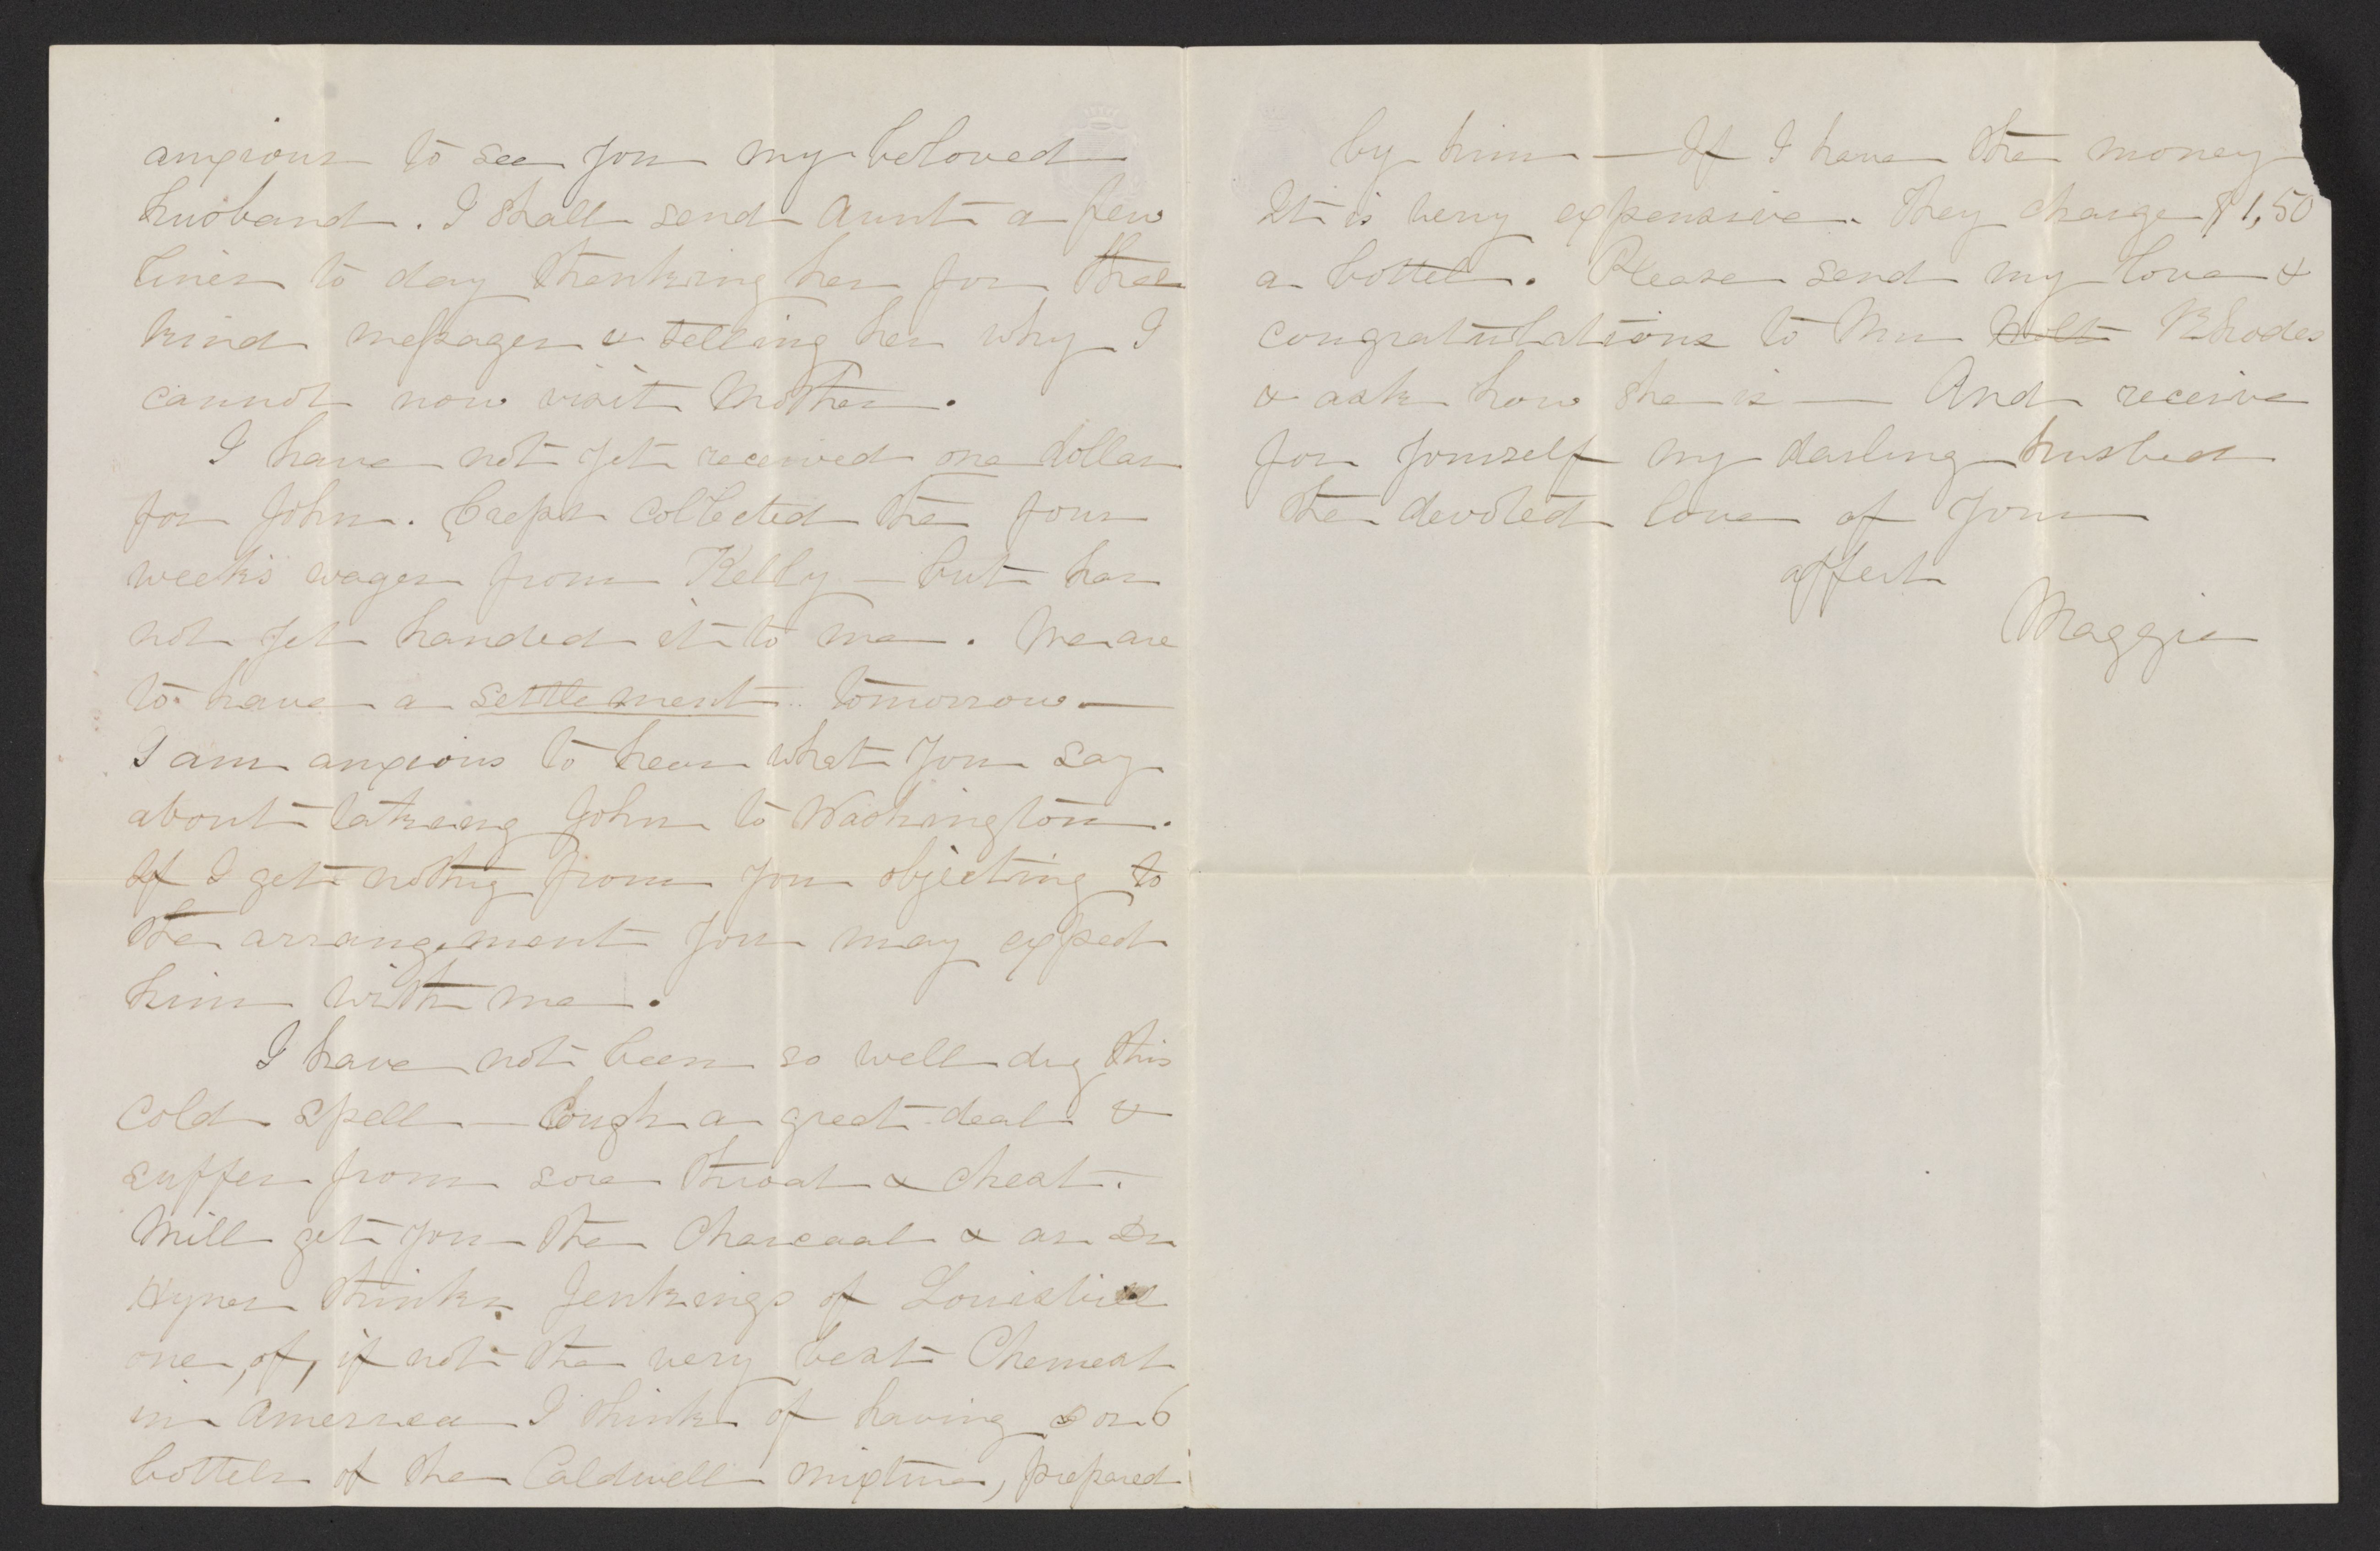 anxious to see you my beloved
husband. I shall send Aunt a few
lines to day thanking her for their
kind messages & telling her why I
cannot now visit Mother.
I have not yet received one dollar
for John. Creps collected the four
weeks wages from Kelly - but has
not yet handed it to me. We are
to have a settlement tomorrow —
I am anxious to hear what you say
about taking John to Washington.
If I get nothig from you objecting to
the arrangement you may expect
him with me.
I have not been so well dug this
cold spell - Cough a great deal &
suffer from sore throat & chest.
Will get you the Charcaal & as Dr
Hynes thinks Jenkings of Louisville
one, of, if not the very best Chemest
in America I think of having 5 or 6
bottels of the Caldwell mixture, prepared
by him — If I have the money
It is very expensive. They charge $1,50
a bottel. Please send my love &
congratulations to Mrs Holt Rhodes
& ask how she is — And receive
for yourself my darling husbad
the devoted love of your
affect
Maggie